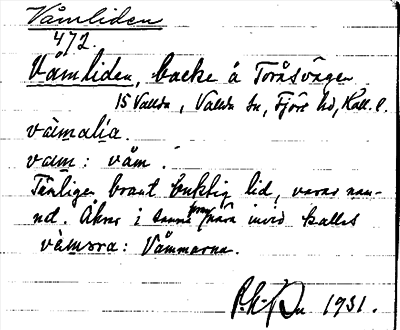 Våmliden
472.
Våmliden, backe å Toråsvägen
15 Valldn, Vallda sn, Fjäre hd, Hall. l.
våmalia.
våm: våm.
Tämligen brant buktig lid, varav nam-
net. Åkrar i samma nära invid kallas
våmsra: Våmmarna.
1931.